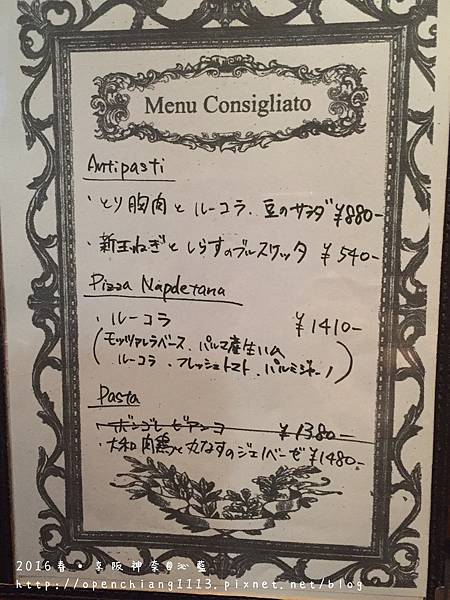 Menu Consigliato
Antipasti
・とり胸肉と ルーコラ、豆のサラダ ¥880-
・新玉ねぎと しらすのブルスケッタ ¥540-
Pizza Napoletana
・ルーコラ ¥1410-
(モッツァレラベース、パルマ産生ハム
ルーコラ、フレッシュトマト、パルミジャーノ)
Pasta
・ボンゴレ ビアンコ ¥1380-
・大和肉鶏と丸なすのジェノベーゼ ¥1480-
2016春・京阪神奈@沁藍
http://openchiang1113.pixnet.net/blog